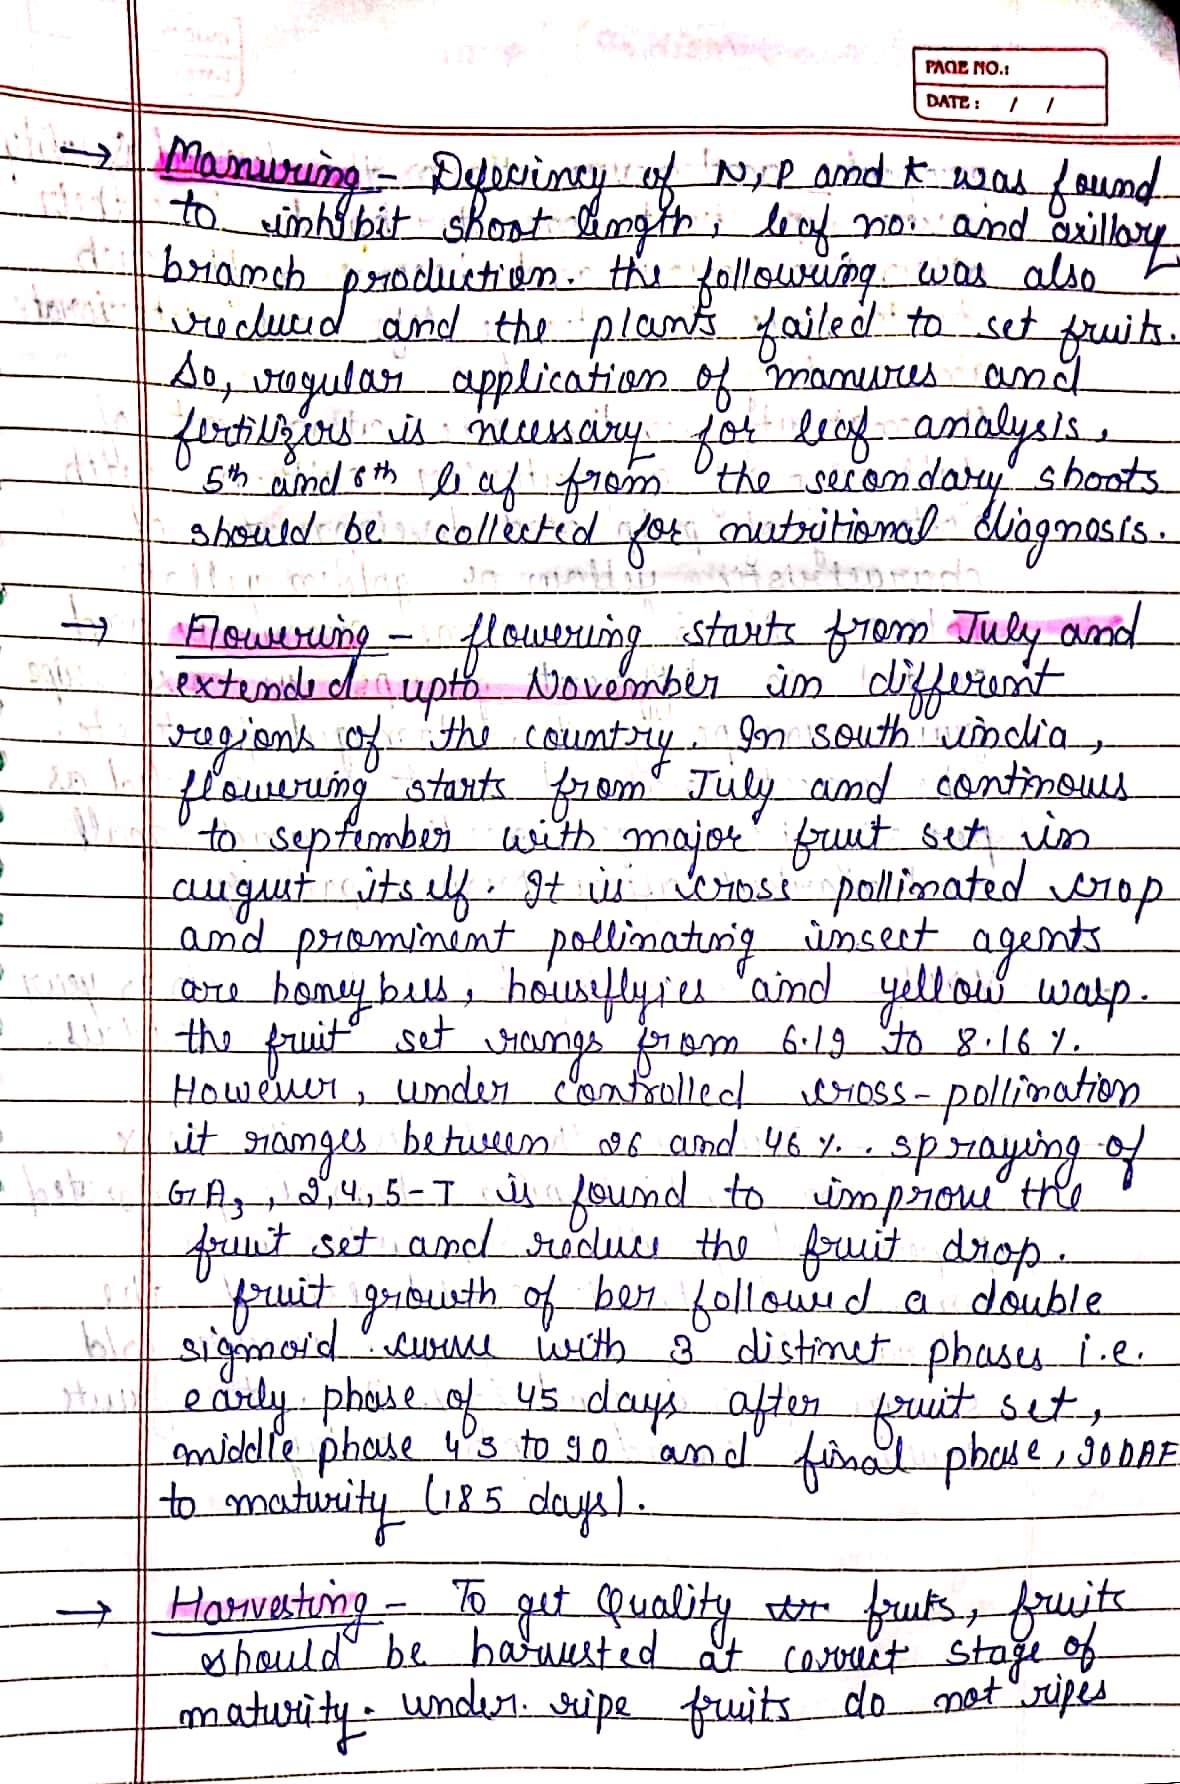 PAGE NO.:
DATE: / /
→ Manuring - Defecincy of N, P and K was found
to inhibit shoot length, leaf no. and axillary
branch production. the following was also
reduced and the plants failed to set fruits.
So, regular application of manures and
fertilizers is necessary for leaf analysis,
5th and 6th leaf from the secondary shoots
should be collected for nutritional diagnosis.
→ Flowering - flowering starts from July and
extended upto November in different
regions of the country. In south india,
flowering starts from July and continous
to september with major fruit set in
august itself. It is cross pollinated crop
and prominent pollinating insect agents
are honey bees, houseflyies and yellow wasp.
the fruit set rangs from 6.19 to 8.16 %.
However, under controlled cross-pollination
it ranges between 26 and 46 %. spraying of
GA3, 2,4,5-T is found to improve the
fruit set and reduce the fruit drop.
fruit growth of ber followed a double
sigmoid curve with 3 distinct phases i.e.
early phase of 45 days after fruit set,
middle phase 45 to 90 and final phase, 90DAF
to maturity (185 days).
→ Harvesting - To get Quality fruts, fruits
should be harvested at correct stage of
maturity. under ripe fruits do not ripes